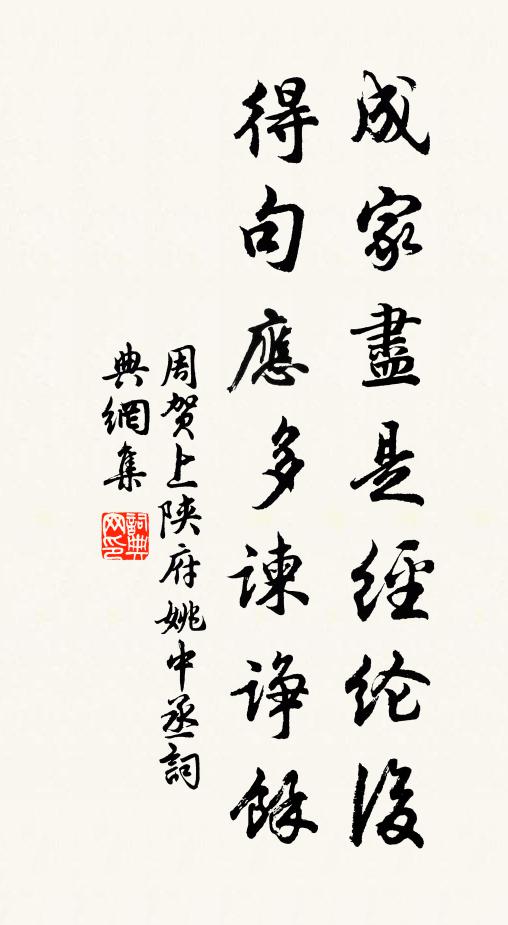 成家盡是經纶後
得句應多諫諍餘
周贺上陝府姚中丞詞
典網集
詞典
网印